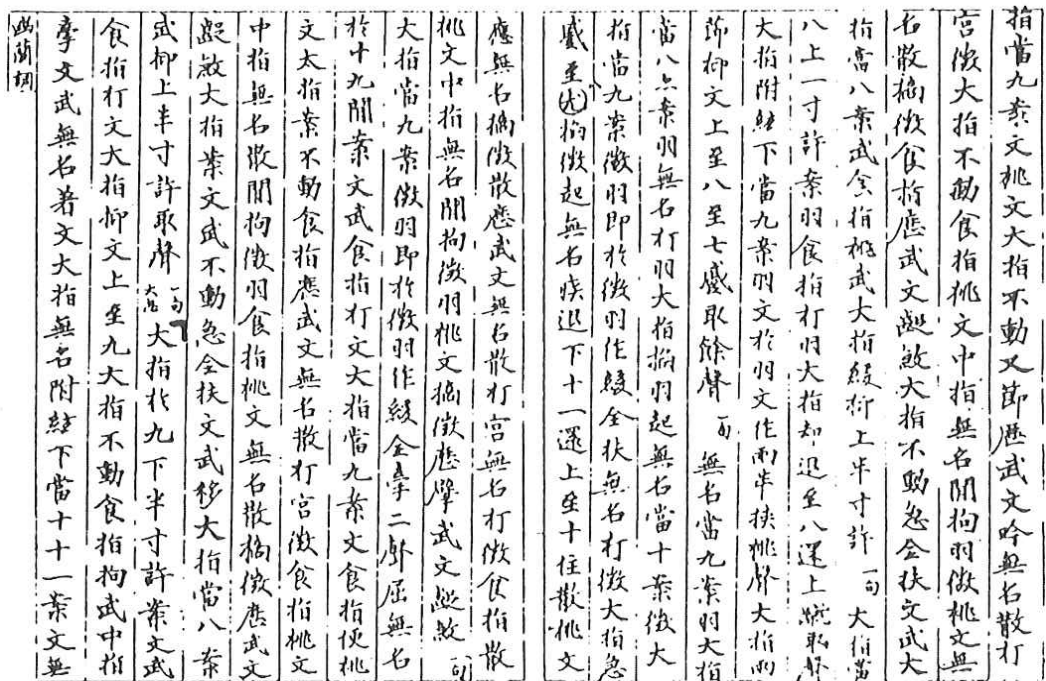 指當九案文挑文大指不動又節歷武文吟無名散打
宮徵大指不動食指挑文中指無名間拘羽徵挑文無
名散摘徵食指應武文蹴敏大指不動急全扶文武大
指當八案武食指挑武大指緩抑上半寸許一句大指當
八上一寸許案羽食指打羽大指却退至八還上取聲
大指附絃下當九案羽文於羽文作兩半扶挑聲大指兩
節抑文上至八至七蹙取餘聲一句無名當九案羽大指
當八案羽無名打羽大指搯羽起無名當十案徵大
指當九案徵羽即於徵羽作緩全扶無名打徵大指急
蹙至八搯徵起無名疾退下十一還上至十住散挑文
應無名摘徵散應武文無名散打宮無名打徵食指散
挑文中指無名間拘徵羽挑文摘徵歷擘武文蹴敏一句
大指當九案徵羽即於徵羽作緩全輪二聲屈無名
於十九間案文武食指打文大指當九案文食指便挑
文大指案不動食指應武文無名散打宮徵食指挑文
中指無名散間拘徵羽食指挑文無名散摘徵歷武文
蹴敏大指案文武不動急全扶文武移大指當八案
武抑上半寸許取聲一句大指於九下半寸許案文武
食指打文大指抑文上至九大指不動食指拘武中指
摩文武無名著文大指無名附絃下當十十一案文無
幽蘭調